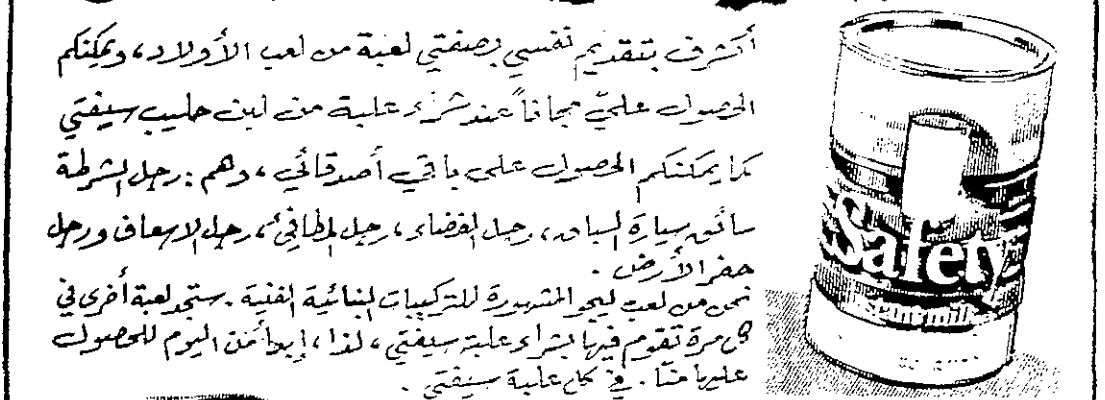 أتشرف بتقديم نفسي بصفتي لعبة من لعب الأولاد، ويمكنكم
الحصول عليّ مجاناً عند شراء علبة من لبن حليب سيفتي
كما يمكنكم الحصول على باقي أصدقائي، وهم: رجل الشرطة
سائق سيارة السباق، رجل الفضاء، رجل المطافئ، رجل الاسعاف ورجل
حفر الأرض.
نحن من لعب ليجو المشهورة للتركيبات البنائية الفنية. ستجد لعبة أخرى في
كل مرة تقوم فيها بشراء علبة سيفتي، لذا، إبدأ من اليوم للحصول
عليها منّا. في كل علبة سيفتي.
Safety